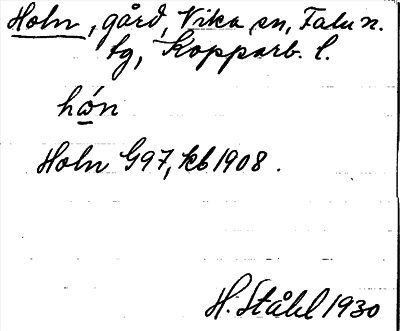 Holn, gård, Vika sn, Falu n.
tg, Kopparb. l.
hó̲n
Holn G97, kb 1908.
H. Ståhl 1930